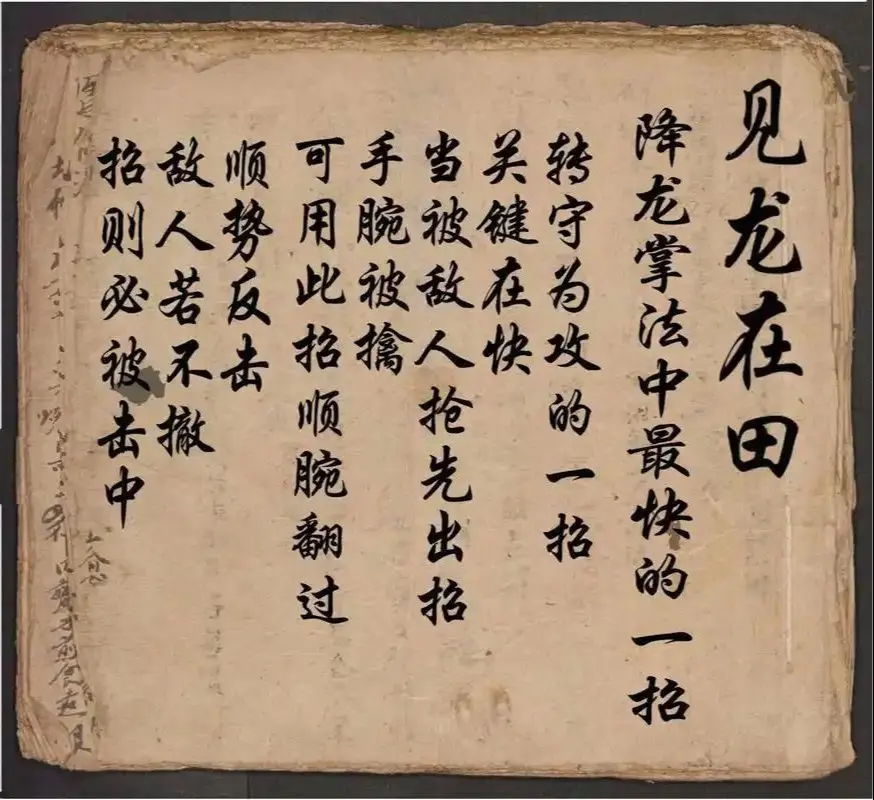 见龙在田
降龙掌法中最快的一招
转守为攻的一招
关键在快
当被敌人抢先出招
手腕被擒
可用此招顺腕翻过
顺势反击
敌人若不撤
招则必被击中